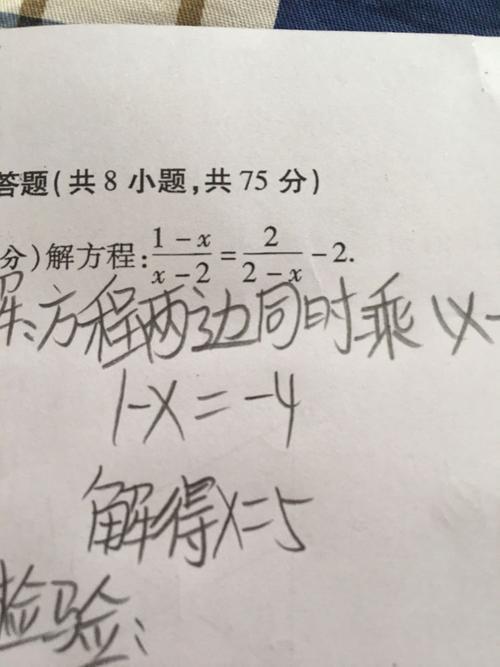 答题(共8小题,共75分)
分)解方程:\frac{1-x}{x-2}=\frac{2}{2-x}-2.
解:方程两边同时乘(x-
1-x=-4
解得x=5
检验: